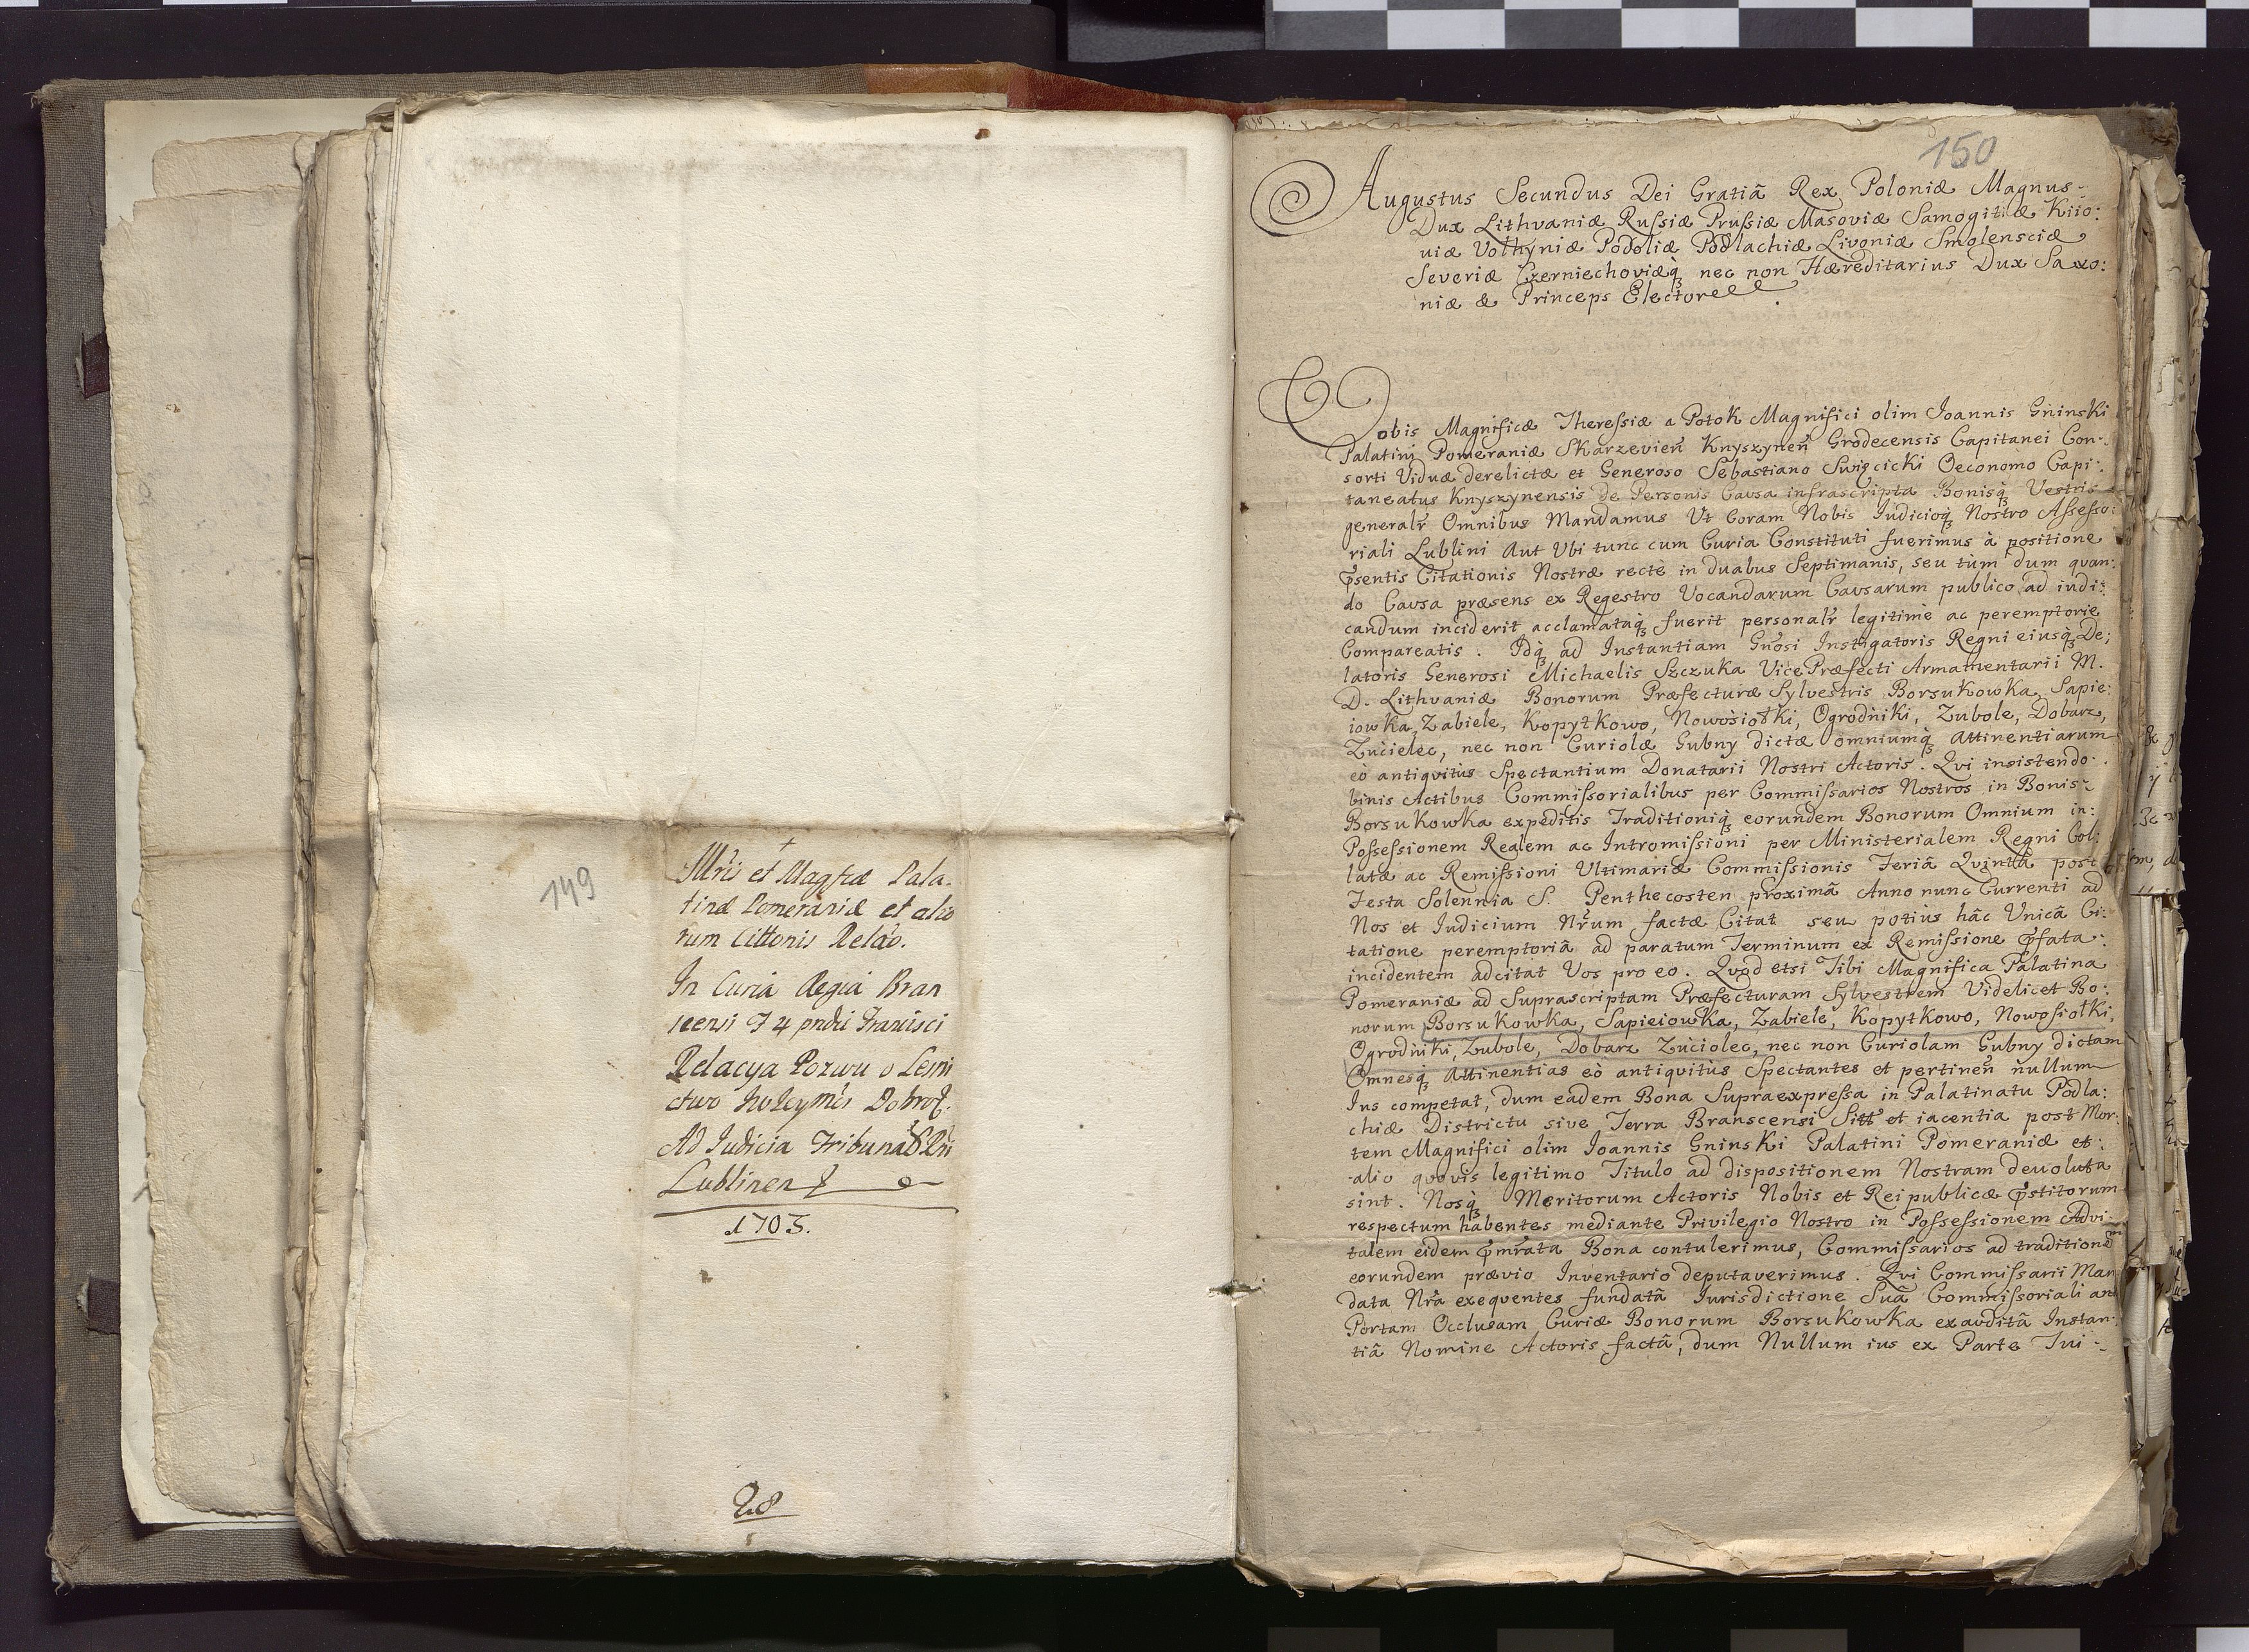 149
Mris et Magfcæ Pala-
tinæ Pomeraniæ et alio
rum Cittonis Relao.
In Curia Regia Bran
scensi F 4 pridii Francisci
Relacya Pozwu o Lesni
ctwo
Ad Iudicia Tribunal Rni
Lublinen
1703.
28
150
Augustus Secundus Dei Gratiâ Rex Poloniæ Magnus-
Dux Lithvaniæ Rußiæ Prußiæ Masoviæ Samogitiæ Kiio:
uiæ Volhyniæ Podoliæ Podlachiæ Livoniæ Smolensciæ
Severiæ Czerniechoviæq nec non Hæreditarius Dux Saxo:
niæ & Princeps Elector
Vobis Magnificæ Thereßiæ a Potok Magnifici olim Ioannis Gninski
Palatini Pomeraniæ Skarzevien Knyszynen Grodecensis Capitanei Con-
sorti Viduæ derelictæ et Generoso Sebastiano Swięcicki Oeconomo Capi:
taneatus Knyszynensis de Personis Causa infrascripta Bonisq Vestris
generalr Omnibus Mandamus Vt Coram Nobis Iudicioq Nostro Aßeßo:
riali Lublini Aut Vbi tunc cum Curia Constituti fuerimus à positione
psentis Citationis Nostræ rectè in duabus Septimanis, seu tùm dum quan:
do Causa præsens ex Regestro Vocandarum Causarum publico ad iudi:
candum inciderit acclamataq fuerit personalr legitimè ac peremptorie
Compareatis. Idq ad Instantiam Gnosi Instigatoris Regni eiusq De:
latoris Generosi Michaelis Szczuka Vice Præfecti Armamentarii M.
D. Lithvaniæ Bonorum Præfecturæ Sylvestris Borsukowka, Sapie:
iowka, Zabiele, Kopytkowo, Nowosiołki, Ogrodniki, Zubole, Dobarz,
Zucielec, nec non Curiolæ Gubny dictæ omniumq Attinentiarum
eò antiqvitùs Spectantium Donatarii Nostri Actoris. Qvi insistendo
binis Actibus Commißorialibus per Commißarios Nostros in Bonis-
Borsukowka expeditis Traditioniq eorundem Bonorum Omnium in:
Poßeßionem Realem ac Intromißioni per Ministerialem Regni Col:
latæ ac Remißioni Ultimariæ Commißionis Feriâ Qvintâ post
Festa Solennia S. Penthecosten proximâ Anno nunc Currenti ad
Nos et Iudicium Nrum factæ Citat seu potiùs hâc Unicâ Ci:
tatione peremptoriâ ad paratum Terminum ex Remißione pfata
incidentem adcitat Vos pro eo. Qvod etsi Tibi Magnifica Palatina
Pomeraniæ ad Suprascriptam Præfecturam Sylvestrem Videlicet Bo:
norum Borsukowka, Sapieiowka, Zabiele, Kopytkowo, Nowosiołki,
Ogrodniki, Zubole, Dobarz Zuciolec, nec non Curiolam Gubny dictam
Omnesq Attinentias eò antiqvitùs Spectantes et pertinen nullum
Ius competat, dum eadem Bona Supraexpreßa in Palatinatu Podla:
chiæ Districtu sive Terra Branscensi Sitt et iacentia post Mor:
tem Magnifici olim Ioannis Gninski Palatini Pomeraniæ et
alio qvovis legitimo Titulo ad dispositionem Nostram devoluta
sint. Nosq Meritorum Actoris Nobis et Reipublicæ pstitorum
respectum habentes mediante Privilegio Nostro in Poßeßionem Advi-
talem eidem pmrata Bona contulerimus, Commißarios ad traditionem
eorundem prævio Inventario deputaverimus. Qvi Commißarii Man
data Nra exeqventes fundatâ Iurisdictione Suâ Commißoriali an
Portam Occlusam Curiæ Bonorum Borsukowka exauditâ Instan:
tiâ Nomine Actoris factâ, dum Nullum ius ex Parte Tui -